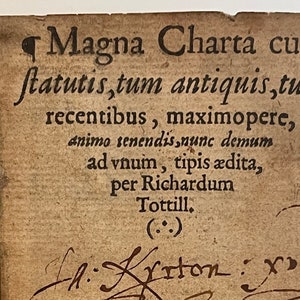 ¶ Magna Charta cu
statutis, tum antiquis, tu
recentibus, maximopere,
animo tenendis, nunc demum
ad vnum, tipis ædita,
per Richardum
Tottill.
(∴)
Ja: Kyrton: xv